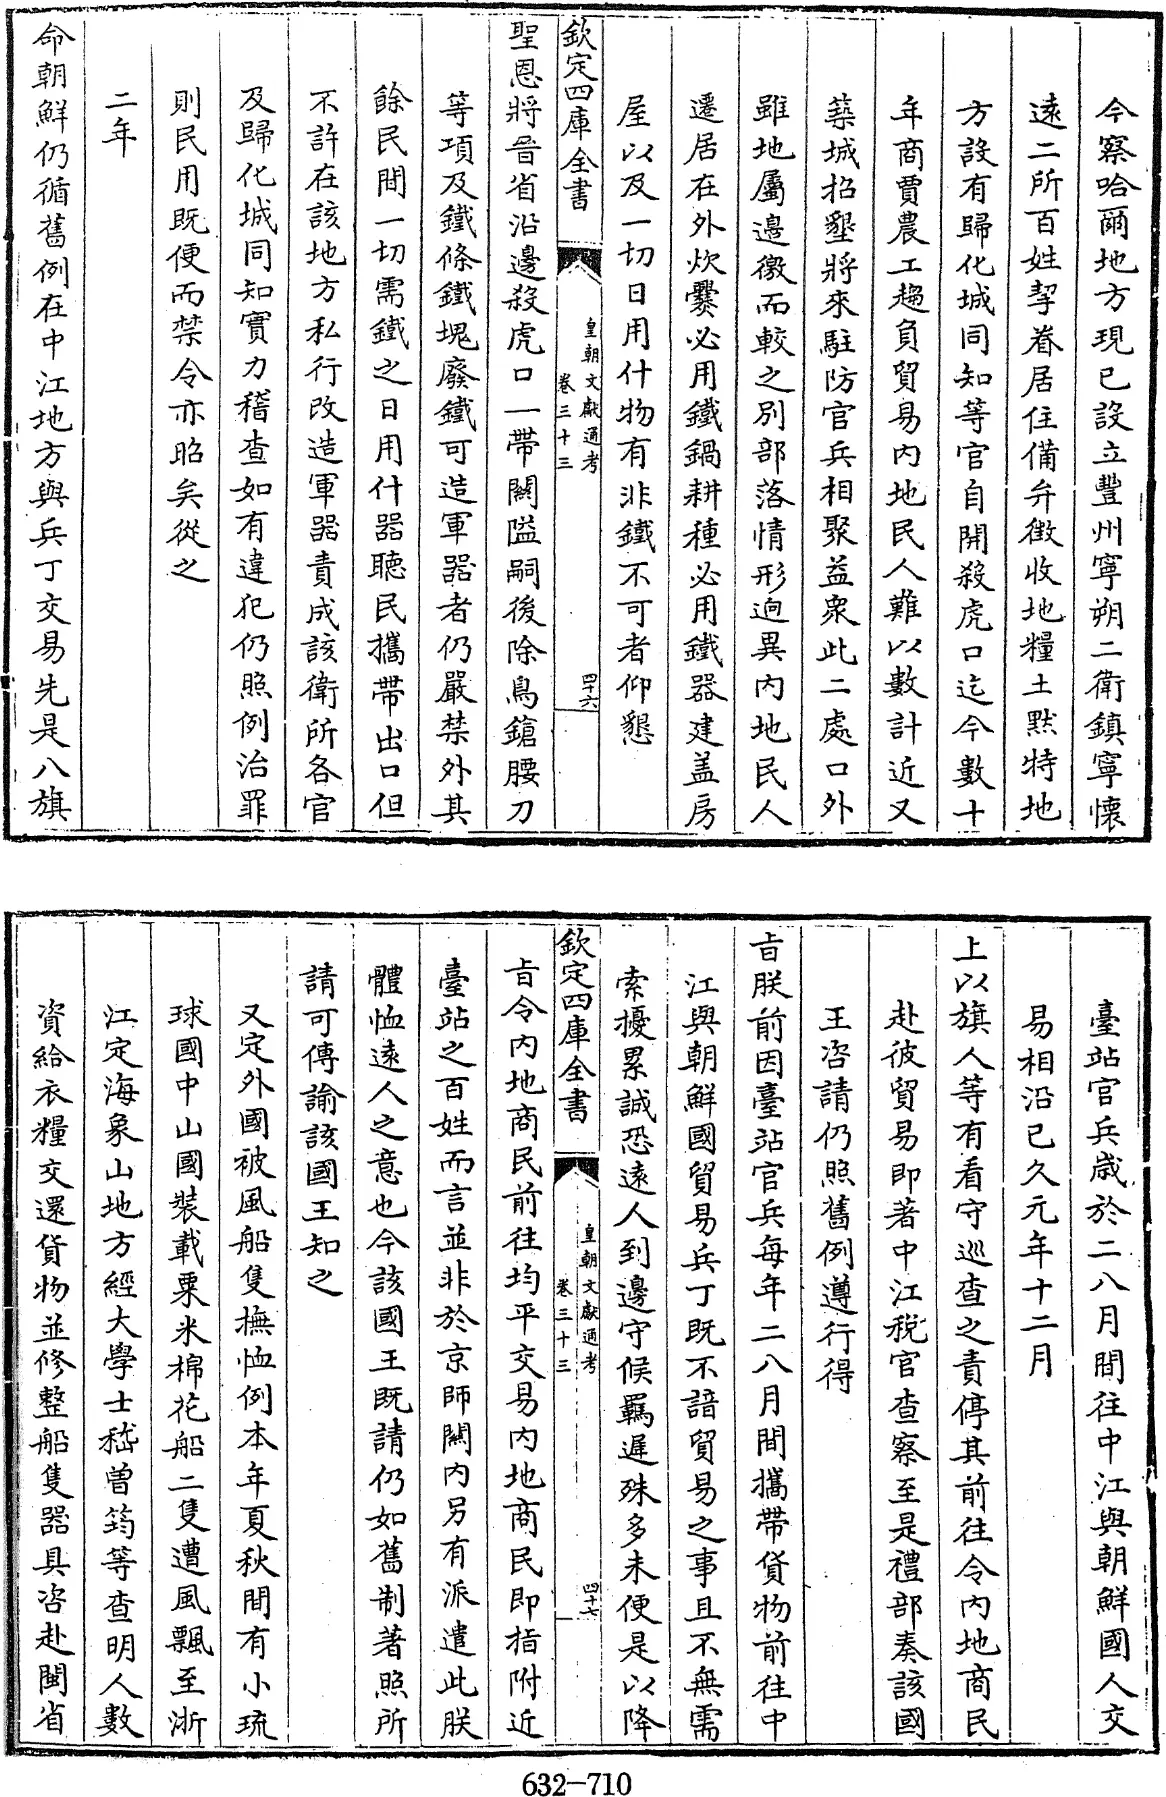 今察哈爾地方現已設立豐州寧朔二衛鎮寧懷
遠二所百姓挈眷居住備弁徵收地糧土黙特地
方設有歸化城同知等官自開殺虎口迄今數十
年商賈農工趨負貿易内地民人難以數計近又
築城招墾將來駐防官兵相聚益衆此二處口外
雖地屬邊徼而較之别部落情形逈異内地民人
遷居在外炊爨必用鐵鍋耕種必用鐵器建盖房
屋以及一切日用什物有非鐵不可者仰懇
欽定四庫全書
皇朝文獻通考
卷三十三
四十六
聖恩將晉省沿邊殺虎口一帶關隘嗣後除鳥鎗腰刀
等項及鐵條鐵塊廢鐵可造軍器者仍嚴禁外其
餘民間一切需鐵之日用什器聽民攜帶出口但
不許在該地方私行改造軍器責成該衛所各官
及歸化城同知實力稽查如有違犯仍照例治罪
則民用既便而禁令亦昭矣從之
二年
命朝鮮仍循舊例在中江地方與兵丁交易先是八旗
臺站官兵歳於二八月間往中江與朝鮮國人交
易相沿已久元年十二月
上以旗人等有看守巡查之責停其前往令内地商民
赴彼貿易即著中江税官查察至是禮部奏該國
王咨請仍照舊例遵行得
㫖朕前因臺站官兵每年二八月間攜帶貨物前往中
江與朝鮮國貿易兵丁既不諳貿易之事且不無需
索擾累誠恐遠人到邊守候羈遲殊多未便是以降
欽定四庫全書
皇朝文獻通考
卷三十三
四十七
㫖令内地商民前往均平交易内地商民即指附近
臺站之百姓而言並非於京師關内另有派遣此朕
體恤逺人之意也今該國王既請仍如舊制著照所
請可傳諭該國王知之
又定外國被風船隻撫恤例本年夏秋間有小琉
球國中山國裝載粟米棉花船二隻遭風飄至浙
江定海象山地方經大學士嵇曾筠等查明人數
資給衣糧交還貨物並修整船隻器具咨赴閩省
632-710